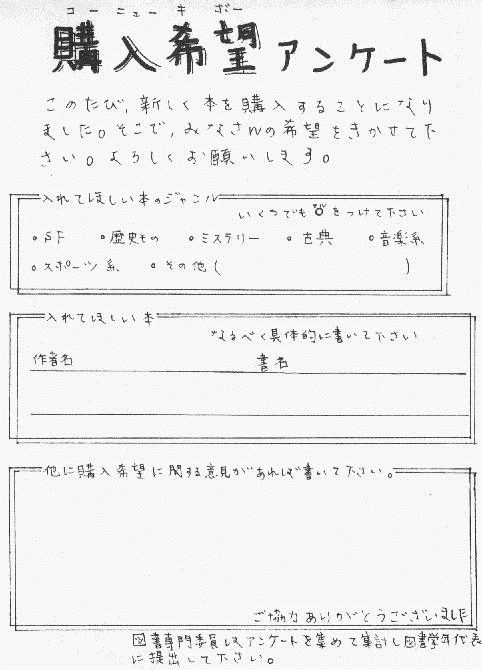 コーニューキボー
購入希望アンケート
このたび、新しく本を購入することになり
ました。そこで、みなさんの希望をきかせて下
さい。よろしくお願いします。
入れてほしい本のジャンル
いくつでも○をつけて下さい
・SF ・歴史もの ・ミステリー ・古典 ・音楽系
・スポーツ系 ・その他( )
入れてほしい本
なるべく具体的に書いて下さい
作者名 書名
他に購入希望に関する意見があれば書いて下さい。
ご協力ありがとうございました
図書専門委員は、アンケートを集めて集計し図書学年代表
に提出して下さい。